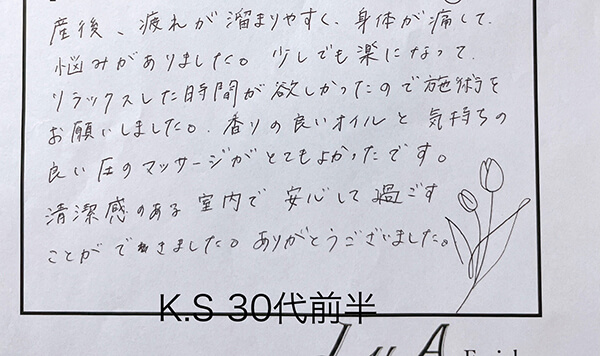 産後、疲れが溜まりやすく、身体が痛して
悩みがありました。少しでも楽になって
リラックスした時間が欲しかったので施術を
お願いしました。香りの良いオイルと気持ちの
良い圧のマッサージがとてもよかったです。
清潔感のある室内で安心して過ごす
ことができました。ありがとうございました。
K.S 30代前半